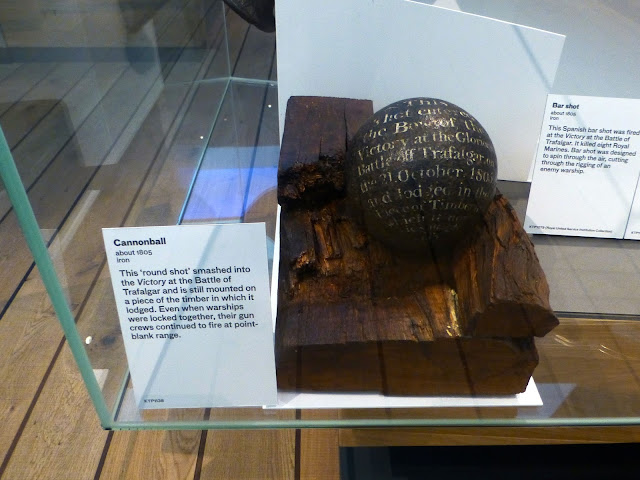 Cannonball
about 1805
iron
This 'round shot' smashed into
the Victory at the Battle of
Trafalgar and is still mounted on
a piece of the timber in which it
lodged. Even when warships
were locked together, their gun
crews continued to fire at point-
blank range.
This
the Bows of
Victory at the Glorious
Battle off Trafalgar on
the 21 October, 180
and lodged in the
Timber
Bar shot
about 1805
iron
This Spanish bar shot was fired
at the Victory at the Battle of
Trafalgar. It killed eight Royal
Marines. Bar shot was designed
to spin through the air, cutting
through the rigging of an
enemy warship.